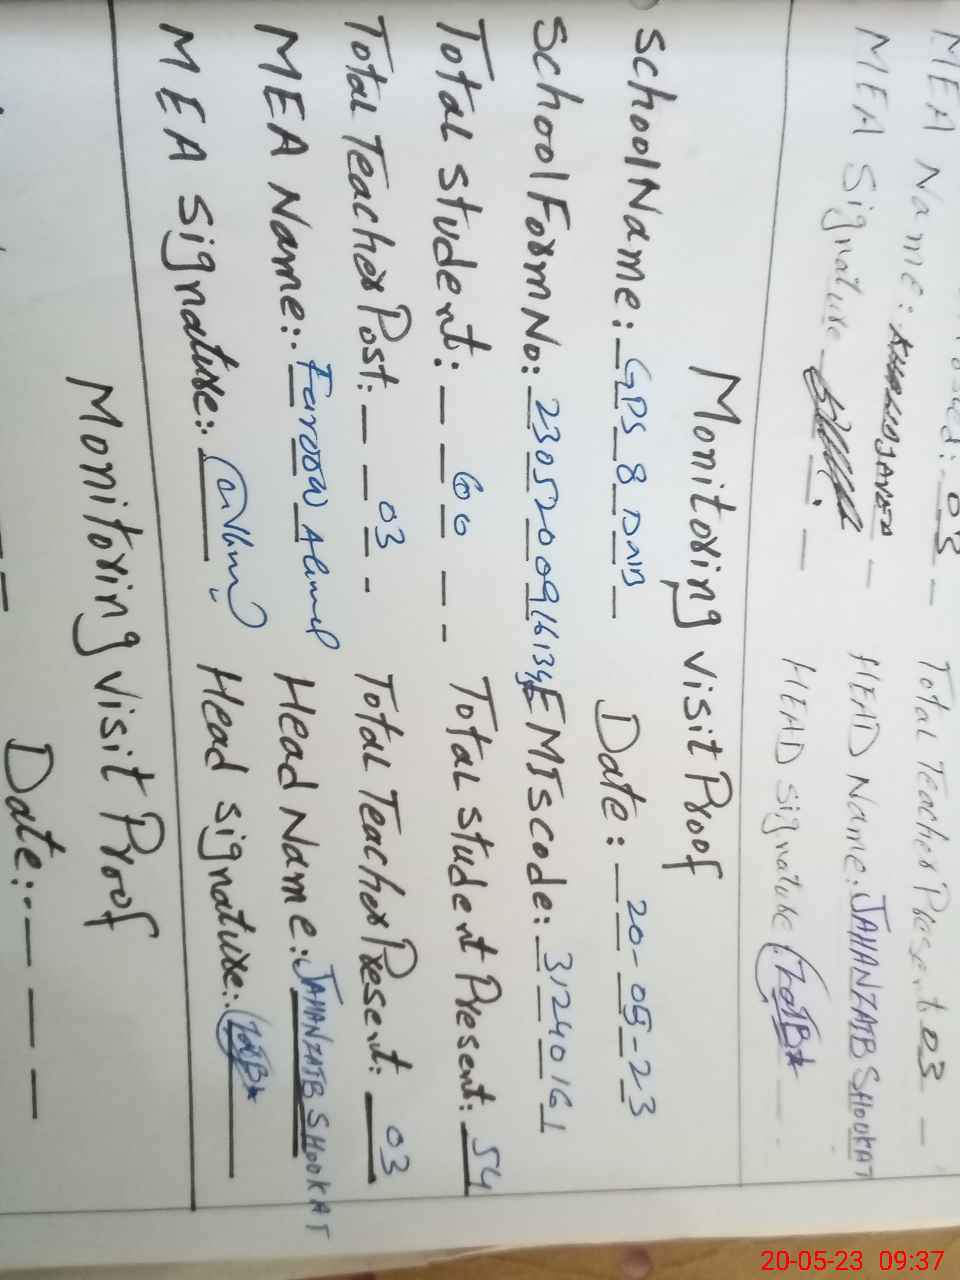 MEA Name: JAVED
Total Teacher Present 03
MEA Signature
HEAD Name: JAHANZAIB SHOUKAT
HEAD signature
Monitoring visit Proof
School Name: GPS 8 D/NB Date: 20-05-23
School Form No: EMIS code: 31240161
Total student: 60 Total student Present: 54
Total Teacher Post: 03 Total Teacher Present: 03
MEA Name: Farooq Ahmed Head Name: JAHANZAIB SHOUKAT
MEA signature: Head signature:
Monitoring visit Proof
Date:
20-05-23 09:37